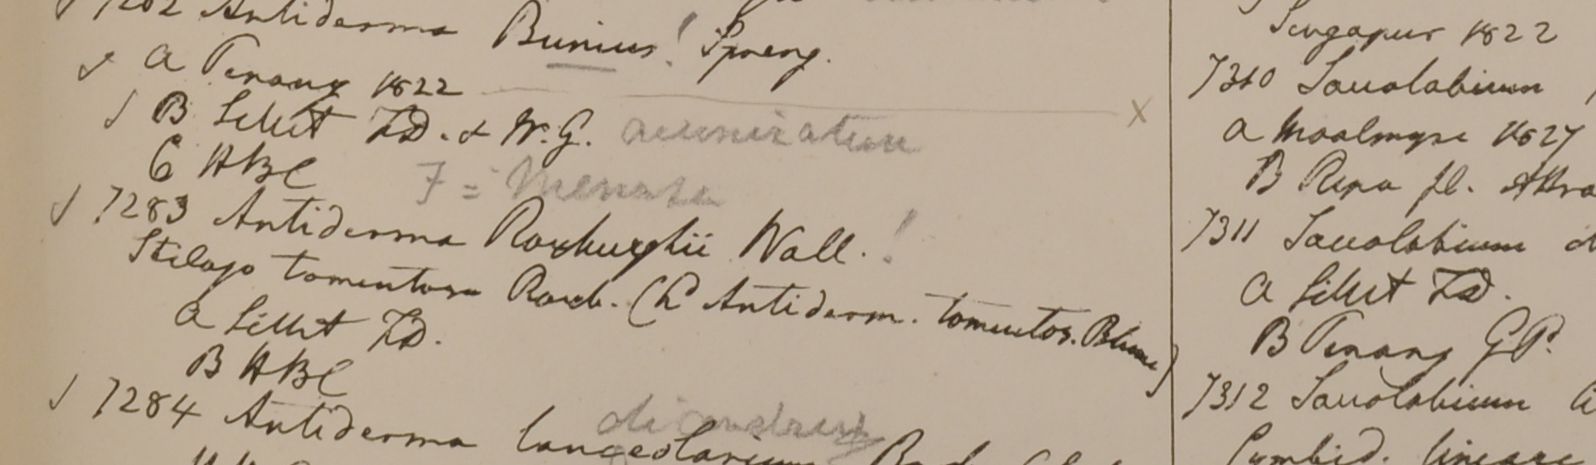 7282 Antiderma Bunius! Spreng.
a Penang 1822 X
B Sillet FD. & W.G. acuminatum
C HBC
7 = Menasu
7283 Antiderma Roxburghii Wall.!
Stilago tomentosa Roxb. (h Antiderm. tomentos. Blume)
a Sillet FD.
B HBC
diandrum
7284 Antiderma lanceolarium Roxb.
Singapur 1822
7310 Saccolabium
a Moalmyne 1827
B Ripa fl.
7311 Saccolabium
a Sillet FD.
B Penang GP.
7312 Saccolabium
Cymbid. lineare